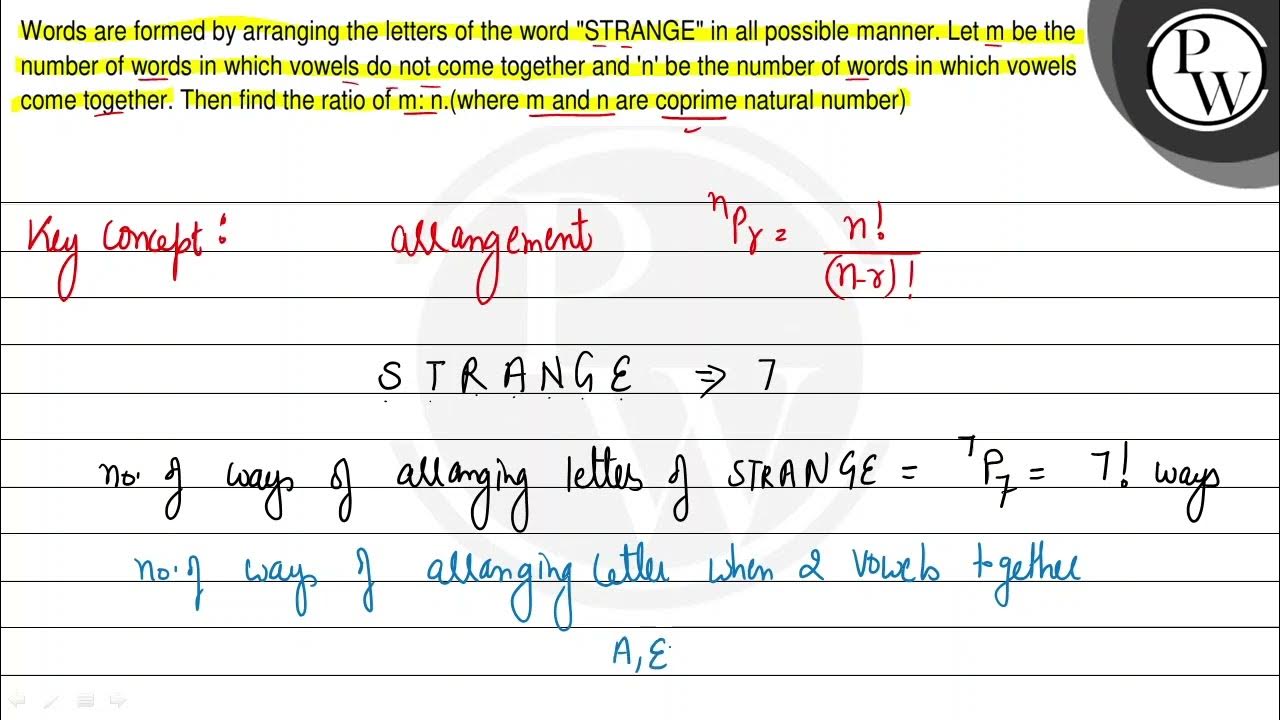 Words are formed by arranging the letters of the word "STRANGE" in all possible manner. Let m be the
number of words in which vowels do not come together and 'n' be the number of words in which vowels
come together. Then find the ratio of m: n.(where m and n are coprime natural number)
P
W
Key Concept : arrangement ⁿPᵣ = n! / (n-r)!
S T R A N G E ⇒ 7
no. of ways of arranging letters of STRANGE = ⁷P₇ = 7! ways
no. of ways of arranging letter when 2 vowels together
A, E